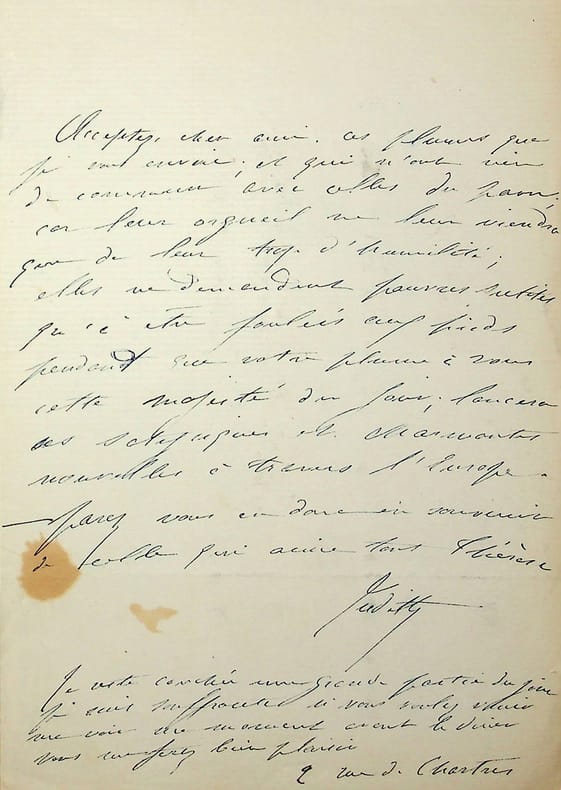 Acceptez, cher ami, ces plumes que
je vous envoie, et qui n'ont rien
de commun avec celles du paon,
car leur orgueil ne leur viendra
que de leur trop d'humilité;
elles ne demandent pauvres petites
qu'à être foulées aux pieds
pendant que votre plume à vous
cette majesté du jour, lancera
ses et charmantes
nouvelles à travers l'Europe.
Parez vous en donc en souvenir
de celle qui aime tant Thérèse
Judith
Je reste couchée une grande partie du jour
je suis souffrante si vous voulez venir
me voir un moment avant le diner
vous me ferez bien plaisir
2 rue de Chartres